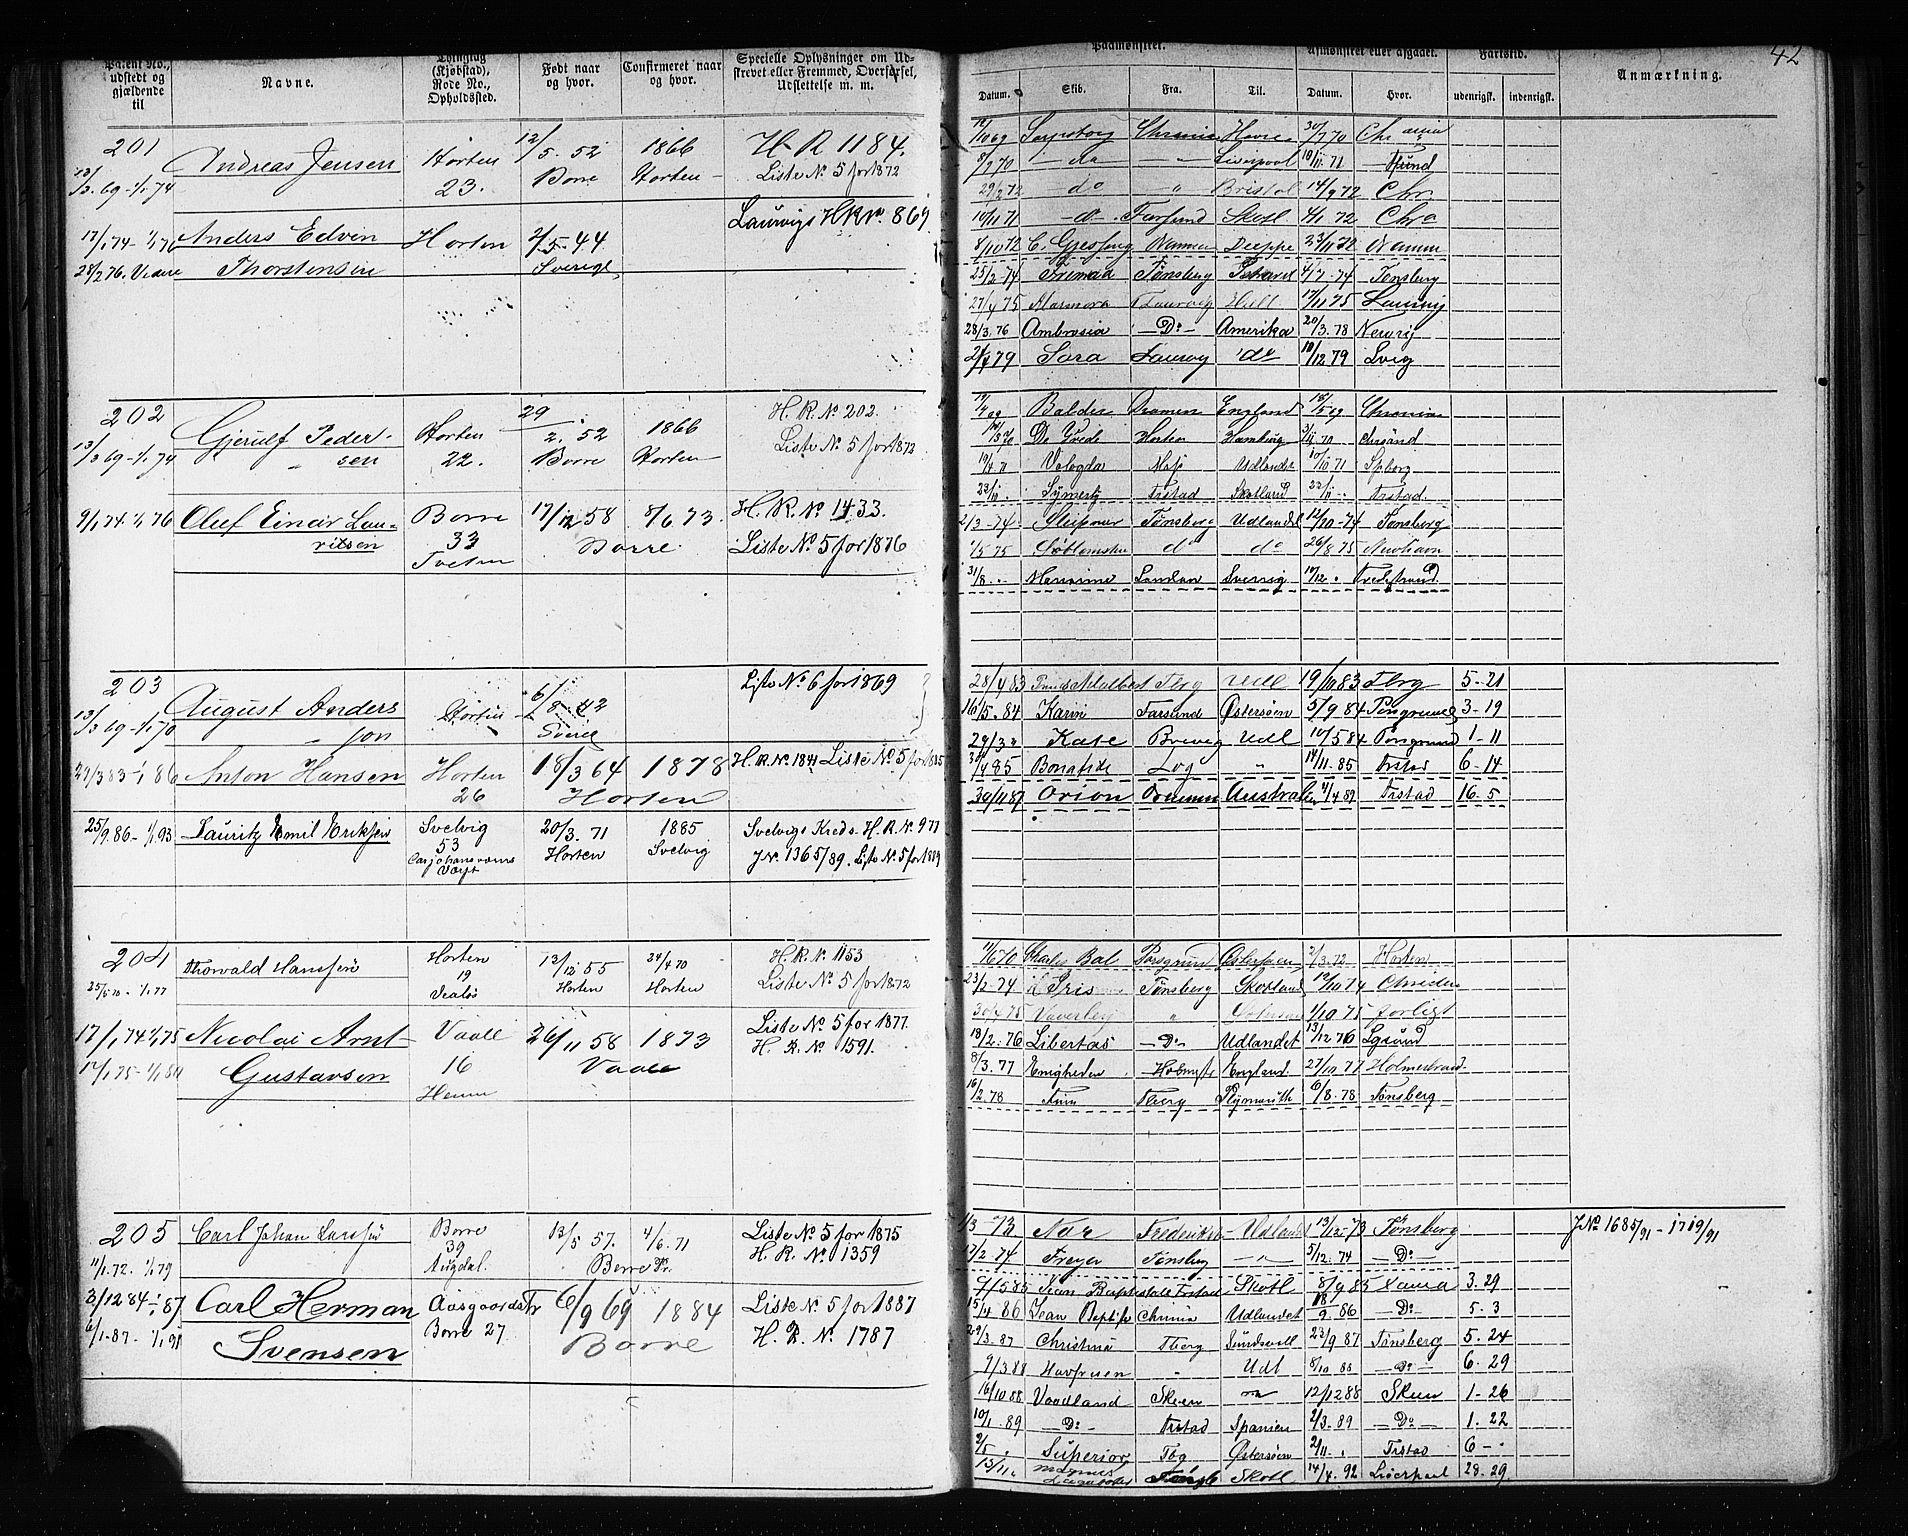 42
Patent No., udstedt og gjældende til
Navne.
(Kjøbstad), Rode No., Opholdssted.
Født naar og hvor.
Confirmeret naar og hvor.
Specielle Oplysninger om Udskrevet eller Fremmed, Overførsel, Udslettelse m. m.
Paamønstret.
Afmønstret eller afgaaet.
Fartstid.
Anmærkning.
Datum. Skib. Fra. Til. Datum. Hvor. udenrigsk. indenrigsk.
201
13/3 69 - 1/1 74
Andreas Jensen
Horten
23.
12/5. 52
Borre
1866
Horten
H R 1184.
Liste No 5 for 1872
17/1 74 - 1/1 76
Anders Edvin
Thorstensen
Horten
2/5. 44
Sverige
Laurvigs H R No. 869
12/10 69 Sarpsborg Chrania Havre 30/7 70
8/7 70 — do — „ Liverpool 10/11. 71
29/2 72 — do „ Bristol 14/9 72 Chr
10/11 71 — do — Farsund Skotl 4/1 72 Chra
8/10 72 23/11 72
25/2 - 74 Tønsberg 4/7 - 74 Tønsberg
27/4 75 Marmora Laurvig Hull 17/11 75 Laurvig
28/3. 76 Ambrosia — Do — Amerika 20/3. 78
79 Sara Laurvig do 10/12 79 Lvig
202
13/3 69 - 1/1 74
Gjerulf Peder-
sen
Horten
22.
29/2. 52
Borre
1866
Horten
H. R. No 202.
Liste No 5 for 1872
9/1 74 1/1 76
Oluf Einar Lau-
ritsen
Borre
33
Tveten
17/12 58
8/6 73.
Borre
H. R. No 1433.
Liste No 5 for 1876
Balder Dramen England 15/5 69 Chrania
Horten Hamburg
19/4. 71 Vologda Udlandet 10/10 71 Spborg
23/10. Frstad Skotland 22/11 Frstad
2/3 - 74 Sleipner Tønsberg Udlandet 12/10 - 74 Tønsberg
1/5 75 do do 26/8 75 Newhavn
31/8 London Sverrig 10/12 Fredrstrand
203
13/3 69 - 1/1 70
August Anders
son
Horten
6/8 - 42
Sverie
Liste No 6 for 1869
29/3 83 1/1 86
Anton Hansen
Horten
26
18/3 64
Horten
1878
H. R. No. 1841 Liste No 5 for 1885
25/9. 86 - 1/1. 93
Lauritz Emil Eriksen
Svelvig
53
Carljohansværns
Værft
20/3. 71
Horten
1885
Svelvig
Svelvigs Kreds. H. R. No 977
J No. 1365/89. Liste No 5 for 1889
28/4 83 Tbrg Udl 19/10 83 Tbrg 5-21
16/5. 84 Karin Farsund Østersøen 5/9 84 Porsgrund 3-19
29/3 Kate Brevig Udl 10/5 84 Porsgrund 1-11
30/4 85 Bonafide „ 14/11. 85 Frstad 6-14
30/11 87 Orion Drammen Australien 4/4 89 Frstad 16-5
204
25/5 70 - 1/1 77
Thorvald Hanssen
Horten
19
Vealøs
13/12 55
Horten
24/4 70
Horten
H. R. No 1153
Liste No 5 for 1872
17/1 74 1/1 75
17/1 75 - 1/1 84
Nicolai Arnt
Gustavsen
Vaale
16
26/11 58
Vaale
1873
Liste No 5 for 1877.
H. R. No 1591.
11/6 70 Charles Bal Porsgrund Østersøen 2/3. 72 Horten
23/2 - 74 Iris Tønsberg Skotland 12/10 74
30/4 75 Vaverley „ 1/10 75 forligt
18/2. 76 Libertas — Do — Udlandet 13/12 76
8/3. 77 Enigheden England 27/10 77 Holmestrand
16/2. 78 Tberg Plymouth 6/8. 78 Tønsberg
205
11/1. 72. 1/1 79
Carl Johan Larssen
Borre
39
Augdal.
13/5 57.
Borre Pr.
4/6. 71
Liste No 5 for 1875
H. R. No 1359
3/12 84 1/1 87
6/1. 87 - 1/1 91
Carl Herman
Svensen
Aasgaardstr
Borre 27
6/9 69
Borre
1884
Liste No 5 for 1887
H. R. No 1787
1/3 - 73 Nor Frederikst Udlandet 13/12 - 73 Tønsberg
J No 1685/91 - 1719/91
17/2 - 74 Freyer Tønsberg — „ — 5/12. 74 — Do —
Frstad Skotl 8/9 85 3. 29
15/4 86 Jean Baptiste Udlandet 18/9 86 — Do — 5. 3
29/3. 87 Christine Tberg Sundsvall 23/9 87 Tønsberg 5. 24
9/3 88 Havfruen „ Udl 8/10 88 — Do — 6. 29
16/10 88 Vaadland Skeen 12/12 88 Skeen 1-26
10/1. 89 — Do — Frstad Spanien 2/3. 89 — Do — 1. 22
2/5 Superior Tbg Østersøen 2/11 Frstad 6 -
13/11 Skotl 14/4. 92 Liverpool 28. 29